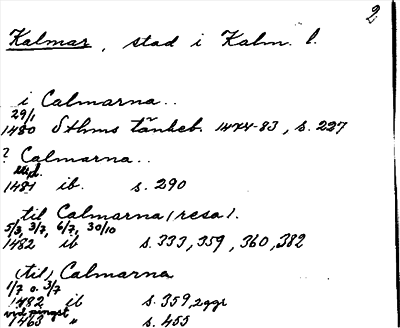 2
Kalmar, stad i Kalm. l.
i Calmarna..
29/1
1480 Sthms tänkeb. 1474-83, s. 227
? Calmarna..
1481 ib. s. 290
til Calmarna (resa).
5/3, 3/7, 6/7, 30/10
1482 ib s. 333, 359, 360, 382
(til) Calmarna
1/7 o. 3/7
1482 ib s. 359, 2 ggr
vid pingst
1483 " s. 455